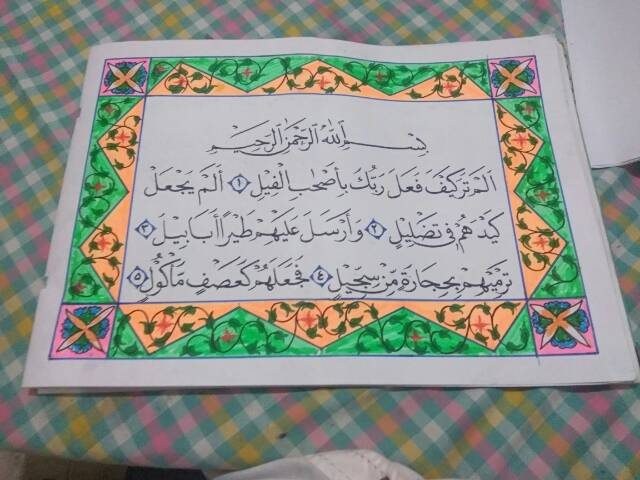 بِسْمِ اللّٰهِ الرَّحْمٰنِ الرَّحِيْمِ
اَلَمْ تَرَ كَيْفَ فَعَلَ رَبُّكَ بِأَصْحٰبِ الْفِيْلِ ١ اَلَمْ يَجْعَلْ
كَيْدَهُمْ فِي تَضْلِيْلٍ ٢ وَأَرْسَلَ عَلَيْهِمْ طَيْرًا أَبَابِيْلَ ٣
تَرْمِيْهِمْ بِحِجَارَةٍ مِّنْ سِجِّيْلٍ ٤ فَجَعَلَهُمْ كَعَصْفٍ مَّأْكُوْلٍ ٥